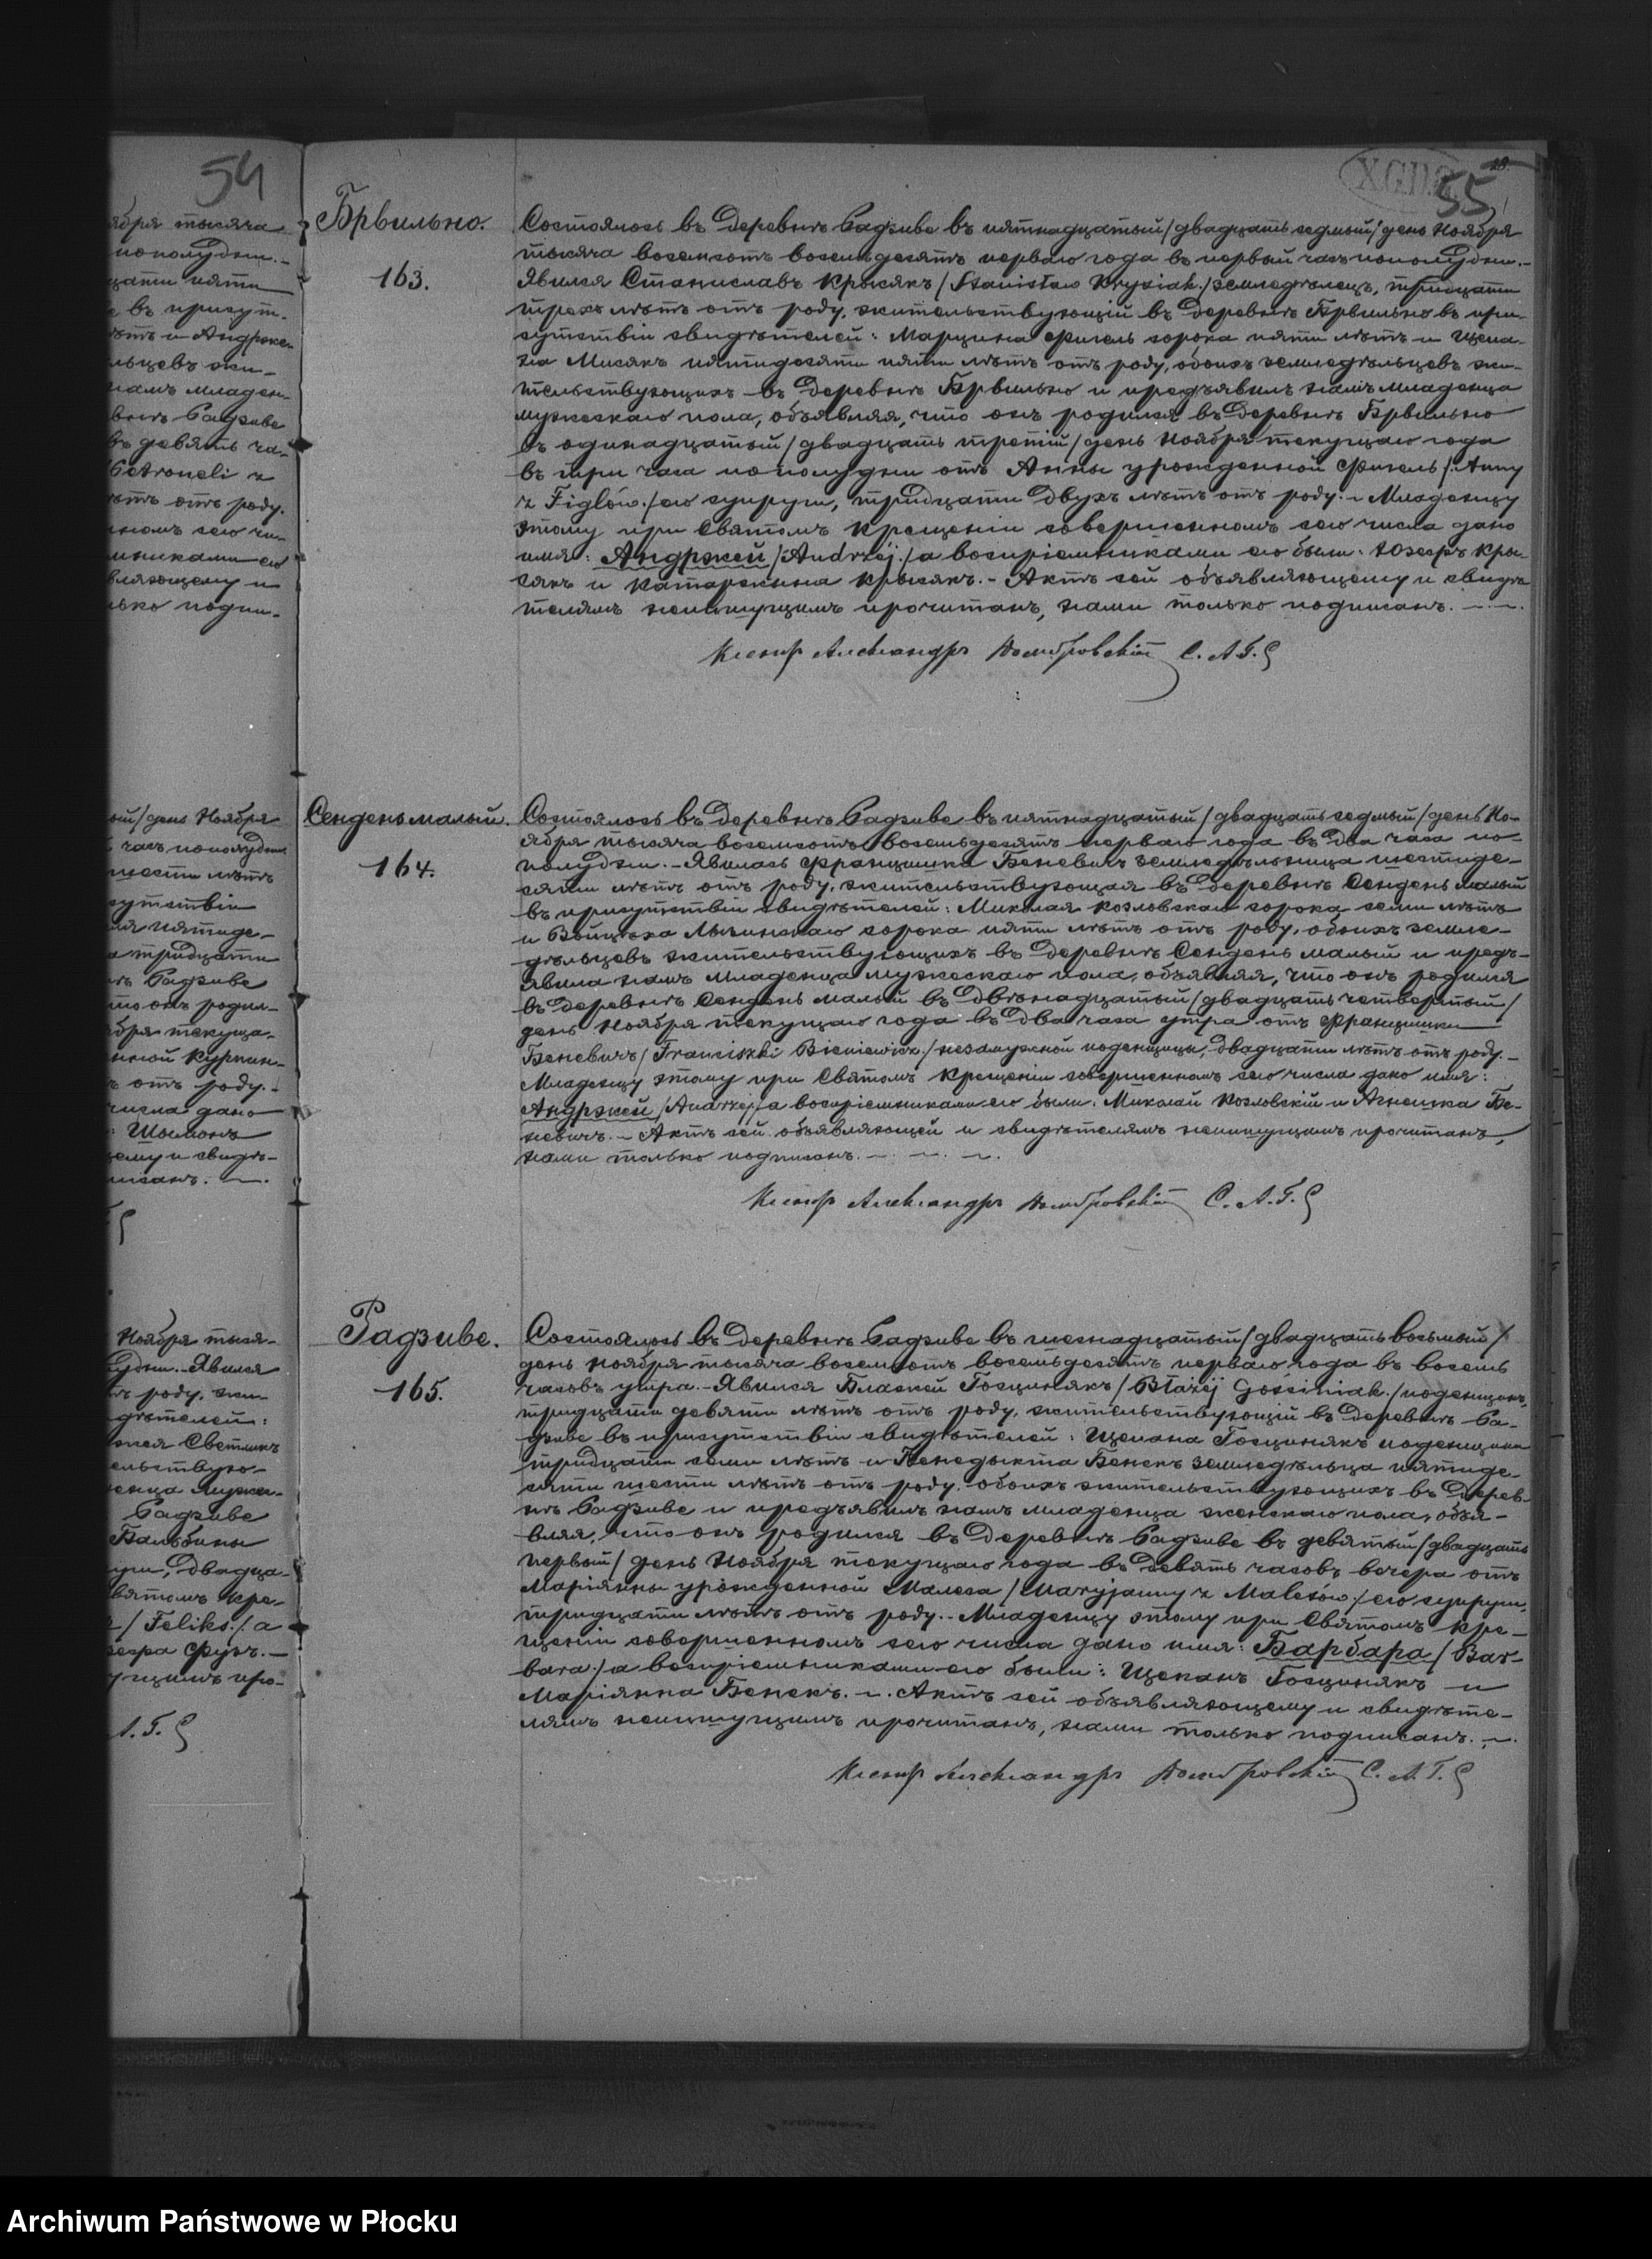 54
ября тысяча
пополудни.-
цати пяти
въ присут-
лѣтъ и Андрже-
льцевъ жи-
намъ младен-
внѣ Радзиве
въ девять ча-
Petroneli z
лѣтъ отъ роду.
нномъ сего чи-
мниками его
вляющему и
лько подпи-
ый/день Ноября
часъ пополудни
шести лѣтъ
сутствіи
пятиде-
тридцати
Радзиве
что онъ родил-
ября текуща-
нной
отъ роду.-
числа дано
Шымонъ
ему и свидѣ-
писанъ.
Ноября тыся-
удни.-Явился
роду, жи-
дѣтелей:
ельствую-
енца муже-
Радзиве
Бальбины
уги, двадца-
вятомъ кре-
/Feliks./ а
А.Г.С
XGD
18.
55
Брвильно.
163.
Состоялось въ деревнѣ Радзиве въ пятнадцатый/двадцать седмый/день Ноября
тысяча восемсотъ восемьдесятъ перваго года въ первый часъ пополудни.-
Явился Станиславъ Крысякъ/Stanisław Krysiak./земледѣлецъ, тридцати
трехъ лѣтъ отъ роду, жительствующій въ деревнѣ Брвильно въ при-
сутствіи свидѣтелей: Марцина Фигель сорока пяти лѣтъ и Щепа-
на Мисякъ пятидесяти пяти лѣтъ отъ роду, обоихъ земледѣльцевъ жи-
тельствующихъ въ деревнѣ Брвильно и предъявилъ намъ младенца
мужескаго пола, объявляя, что онъ родился въ деревнѣ Брвильно
въ одинадцатый/двадцать третій/день Ноября текущаго года
въ три часа пополудни отъ Анны урожденной Фигель/Anny
z Figlów./его супруги, тридцати двухъ лѣтъ отъ роду.- Младенцу
этому при Святомъ Крещеніи совершенномъ сего числа дано
имя: Андржей/Andrzéj./а воспріемниками его были: Юзефъ Кры-
сякъ и Катаржина Крысякъ.- Актъ сей объявляющему и свидѣ-
телямъ неишущимъ прочитанъ, нами только подписанъ.
Ксендзъ Александръ Домбровскій С.А.Г.С
Сенденьмалый.
164.
Состоялось въ деревнѣ Радзиве въ пятнадцатый/двадцать седмый/день Но-
ября тысяча восемсотъ восемьдесятъ перваго года въ два часа по-
полудни.-Явилась Францишка Беневичъ земледѣльница шестиде-
сяти лѣтъ отъ роду, жительствующая въ деревнѣ Сендень малый
въ присутствіи свидѣтелей: Миколая Козловскаго сорока семи лѣтъ
и Войцѣха сорока пяти лѣтъ отъ роду, обоихъ земле-
дѣльцевъ жительствующихъ въ деревнѣ Сендень малый и предъ-
явила намъ младенца мужескаго пола, объявляя, что онъ родился
въ деревнѣ Сендень малый въ двѣнадцатый/двадцать четвертый/
день Ноября текущаго года въ два часа утра отъ Францишки
Беневичъ/Franciszki Bieniewicz./незамужной поденщицы, двадцати лѣтъ отъ роду.-
Младенцу этому при Святомъ Крещеніи совершенномъ сего числа дано имя:
Андржей/Andrzéj/а воспріемниками его были: Миколай Козловскій и Агнешка Бе-
невичъ.-Актъ сей объявляющей и свидѣтелямъ неишущимъ прочитанъ,
нами только подписанъ.
Ксендзъ Александръ Домбровскій С.А.Г.С
Радзиве.
165.
Состоялось въ деревнѣ Радзиве въ шестнадцатый/двадцать восьмый/
день Ноября тысяча восемсотъ восемьдесятъ перваго года въ восемь
часовъ утра.-Явился Блажей Госцинякъ/Błażéj Gościniak./поденщикъ,
тридцати девяти лѣтъ отъ роду, жительствующій въ деревнѣ Ра-
дзиве въ присутствіи свидѣтелей: Щепана Госцинякъ поденщика
тридцати семи лѣтъ и Бенедыкта Бенекъ земледѣльца пятиде-
сяти шести лѣтъ отъ роду, обоихъ жительствующихъ въ дерев-
нѣ Радзиве и предъявилъ намъ младенца женскаго пола, объя-
вляя, что онъ родился въ деревнѣ Радзиве въ девятый/двадцать
первый/день Ноября текущаго года въ девять часовъ вечера отъ
Маріянны урожденной Малеса/Maryjanny z Malesów/его супруги,
тридцати лѣтъ отъ роду.-Младенцу этому при Святомъ Кре-
щеніи совершенномъ сего числа дано имя: Барбара/Bar-
bara/а воспріемниками его были: Щепанъ Госцинякъ и
Маріянна Бенекъ.-Актъ сей объявляющему и свидѣте-
лямъ неишущимъ прочитанъ, нами только подписанъ.
Ксендзъ Александръ Домбровскій С.А.Г.С
Archiwum Państwowe w Płocku